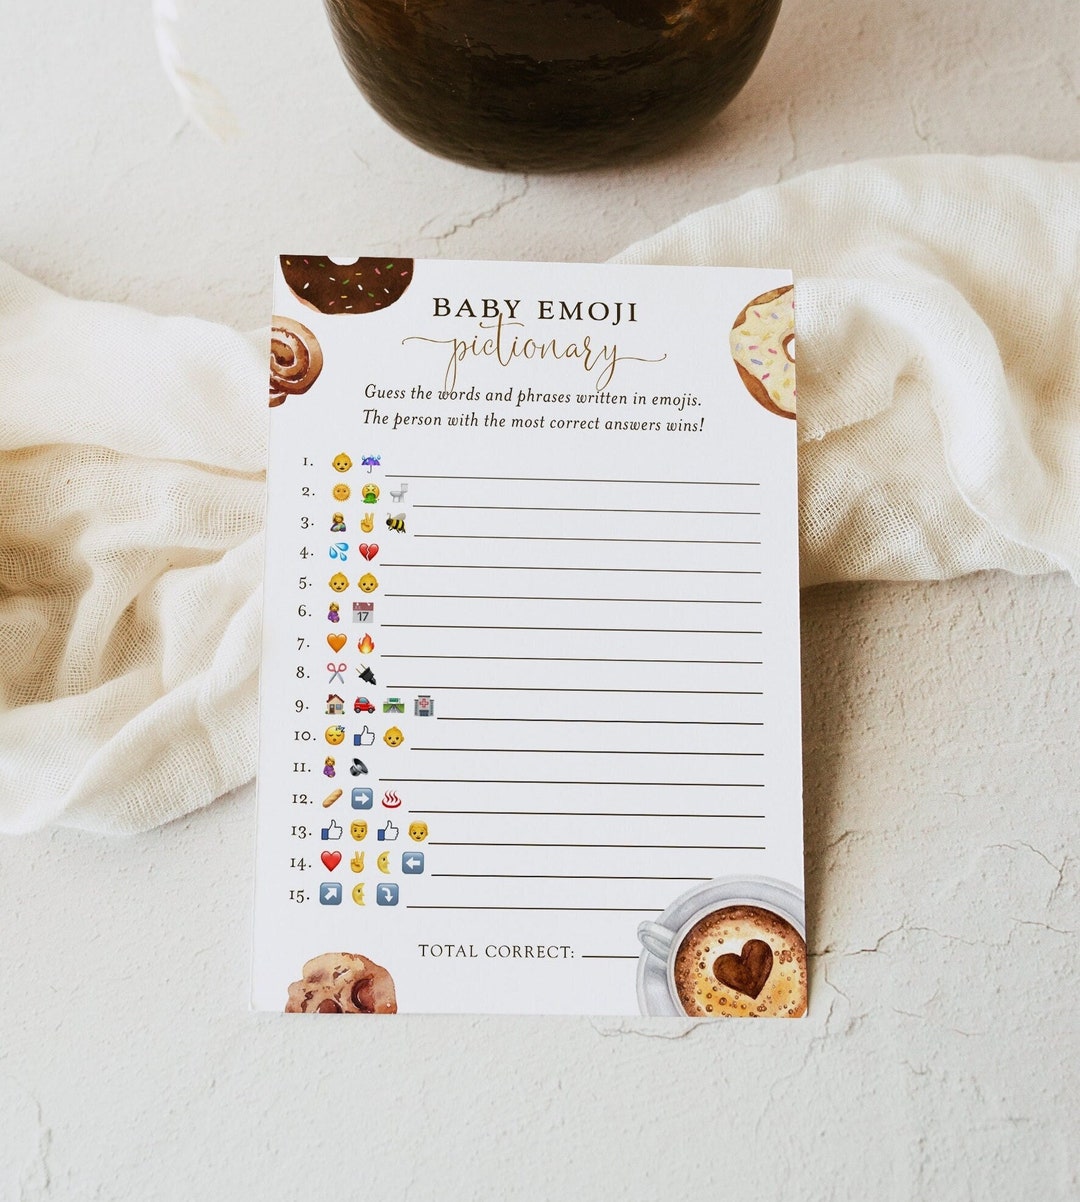 BABY EMOJI
pictionary
Guess the words and phrases written in emojis.
The person with the most correct answers wins!
1. 👶 ☔
2. 🌞 🤮 🚽
3. 🤱 ✌ 🐝
4. 💦 💔
5. 👶 👶
6. 🤰 📅 17
7. 🧡 🔥
8. ✂ 🔌
9. 🏠 🚗 🛣 🏥
10. 😴 👍 👶
11. 🤰 🔈
12. 🥖 ➡ ♨
13. 👍 👨 👍 👦
14. ❤ ✌ 🌜 ⬅
15. ↗ 🌜 ⤵
TOTAL CORRECT: